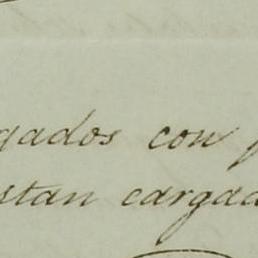 gados con
stan cargad